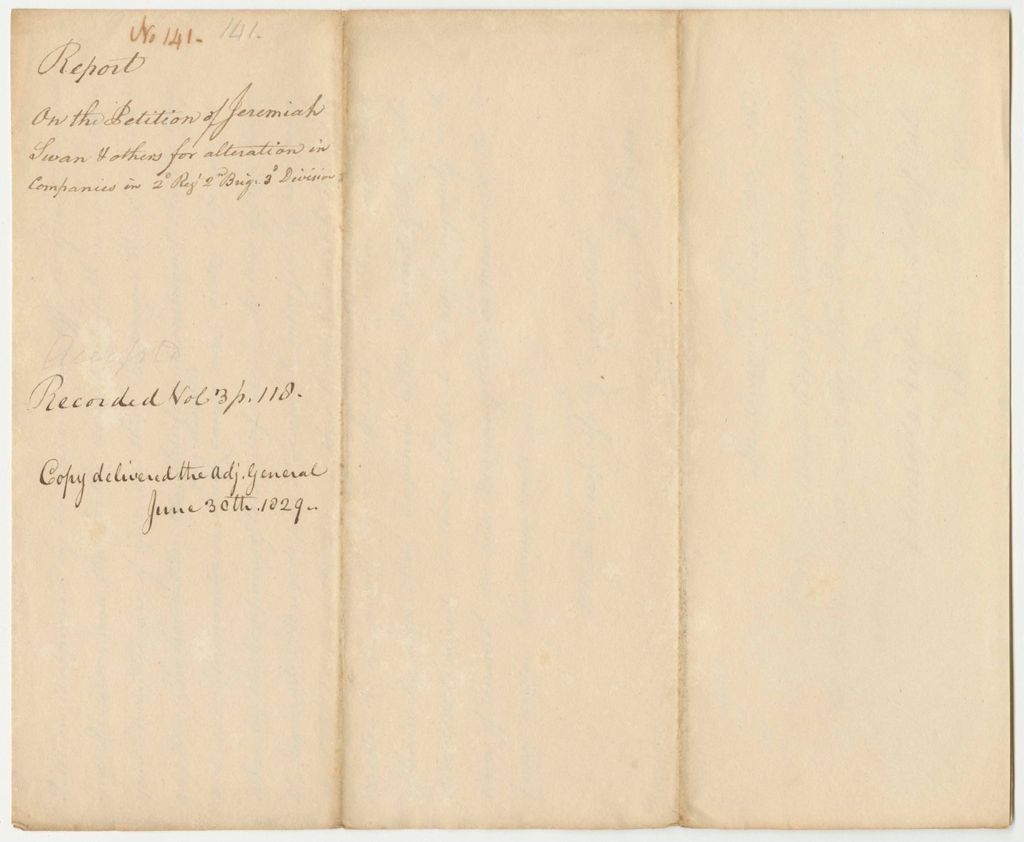 No 141. 141.
Report
On the Petition of Jeremiah
Swan & others for alteration in
Companies in 2d Regt 2nd Brig. 3d Division
Accepted
Recorded Vol 3 p. 118.
Copy delivered the Adj. General
June 30th. 1829.